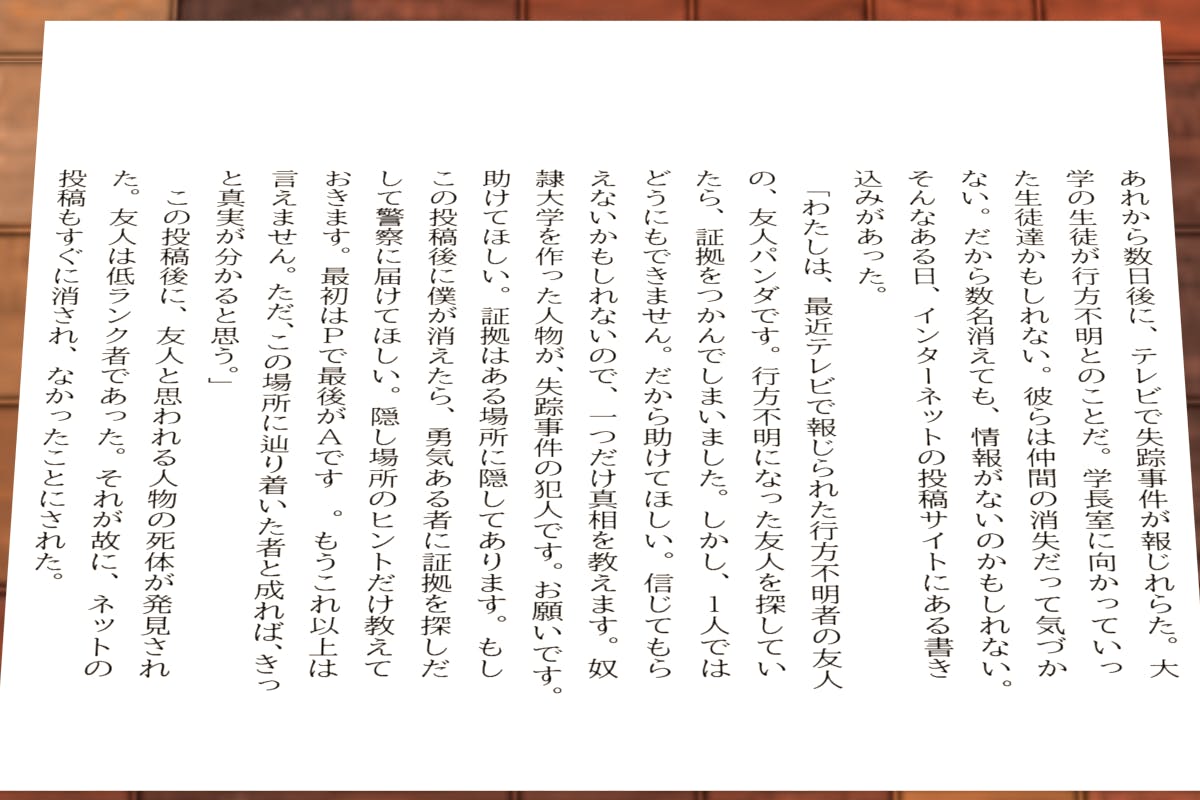 あれから数日後に、テレビで失踪事件が報じれらた。大
学の生徒が行方不明とのことだ。学長室に向かっていっ
た生徒達かもしれない。彼らは仲間の消失だって気づか
ない。だから数名消えても、情報がないのかもしれない。
そんなある日、インターネットの投稿サイトにある書き
込みがあった。
「わたしは、最近テレビで報じられた行方不明者の友人
の、友人パンダです。行方不明になった友人を探してい
たら、証拠をつかんでしまいました。しかし、1人では
どうにもできません。だから助けてほしい。信じてもら
えないかもしれないので、一つだけ真相を教えます。奴
隷大学を作った人物が、失踪事件の犯人です。お願いです。
助けてほしい。証拠はある場所に隠してあります。もし
この投稿後に僕が消えたら、勇気ある者に証拠を探しだ
して警察に届けてほしい。隠し場所のヒントだけ教えて
おきます。最初はPで最後がAです　。もうこれ以上は
言えません。ただ、この場所に辿り着いた者と成れば、きっ
と真実が分かると思う。」
この投稿後に、友人と思われる人物の死体が発見され
た。友人は低ランク者であった。それが故に、ネットの
投稿もすぐに消され、なかったことにされた。